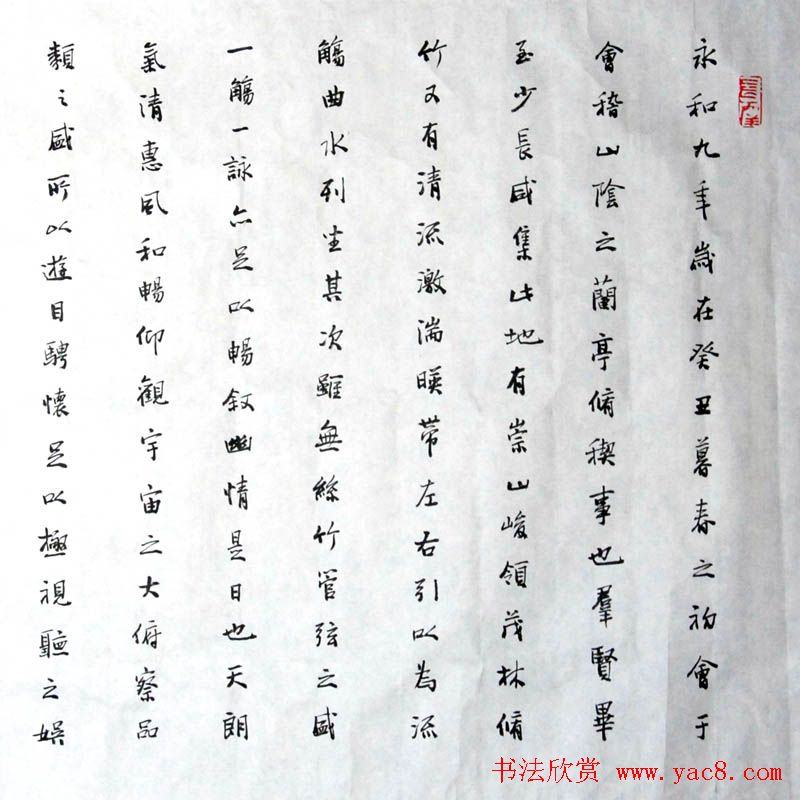 永和九年歲在癸丑暮春之初會于
會稽山陰之蘭亭脩稧事也羣賢畢
至少長咸集此地有崇山峻領茂林脩
竹又有清流激湍暎帶左右引以為流
觴曲水列坐其次雖無絲竹管弦之盛
一觴一詠亦足以暢敘幽情是日也天朗
氣清惠風和暢仰觀宇宙之大俯察品
類之盛所以遊目騁懷足以極視聽之娛
书法欣赏 www.yac8.com